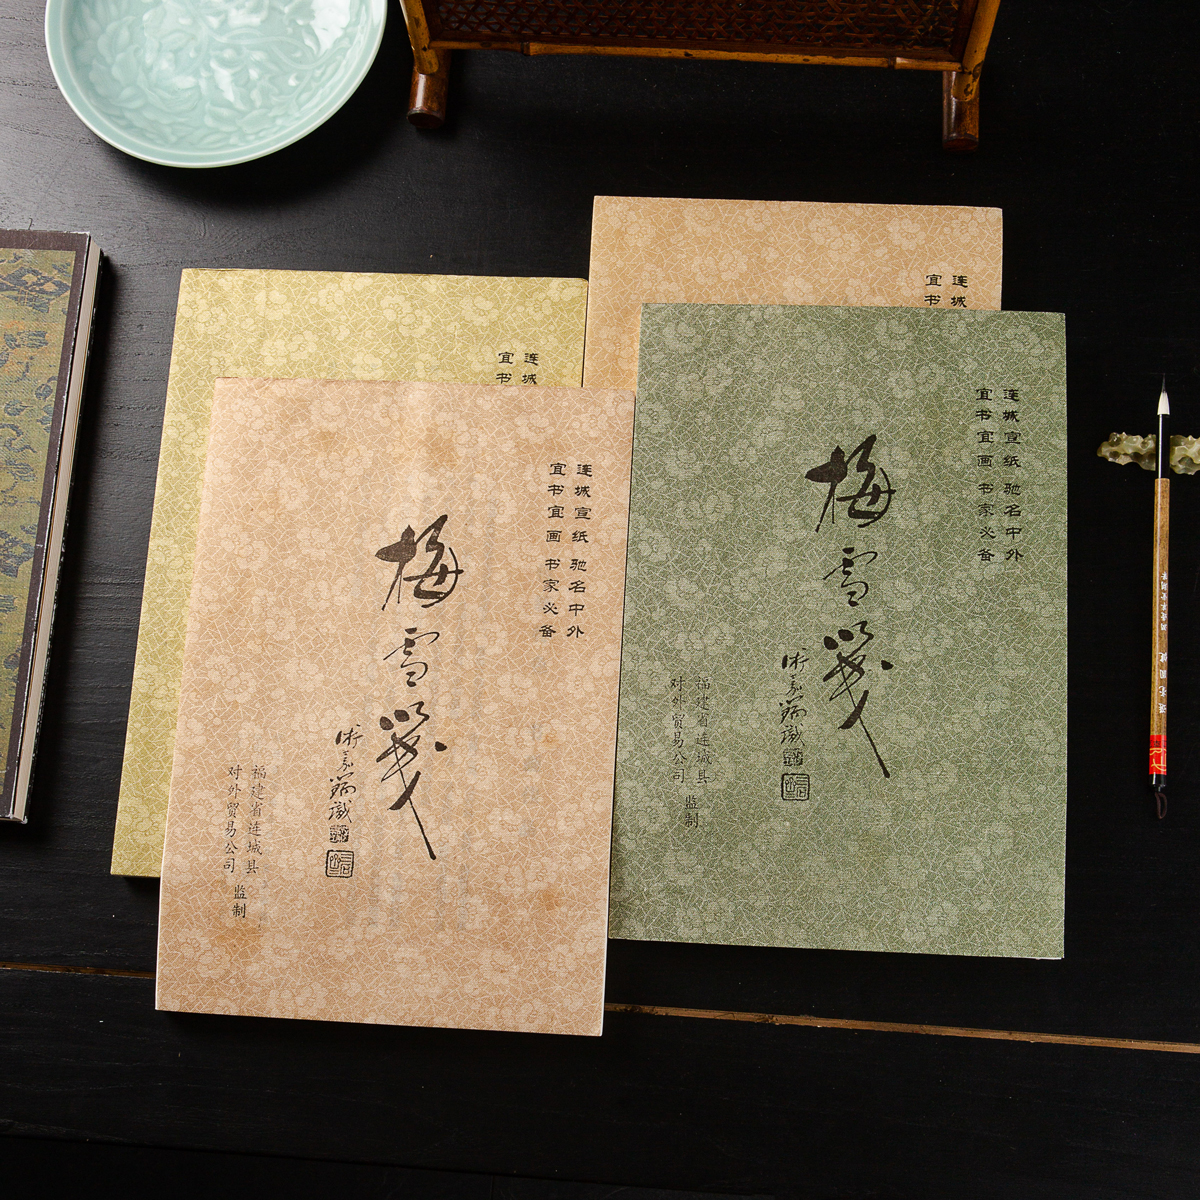 连城
宜书
连城
宜书
连城宣纸 驰名中外
宜书宜画 书家必备
梅雪笺
福建省连城县
对外贸易公司 监制
连城宣纸 驰名中外
宜书宜画 书家必备
梅雪笺
福建省连城县
对外贸易公司 监制